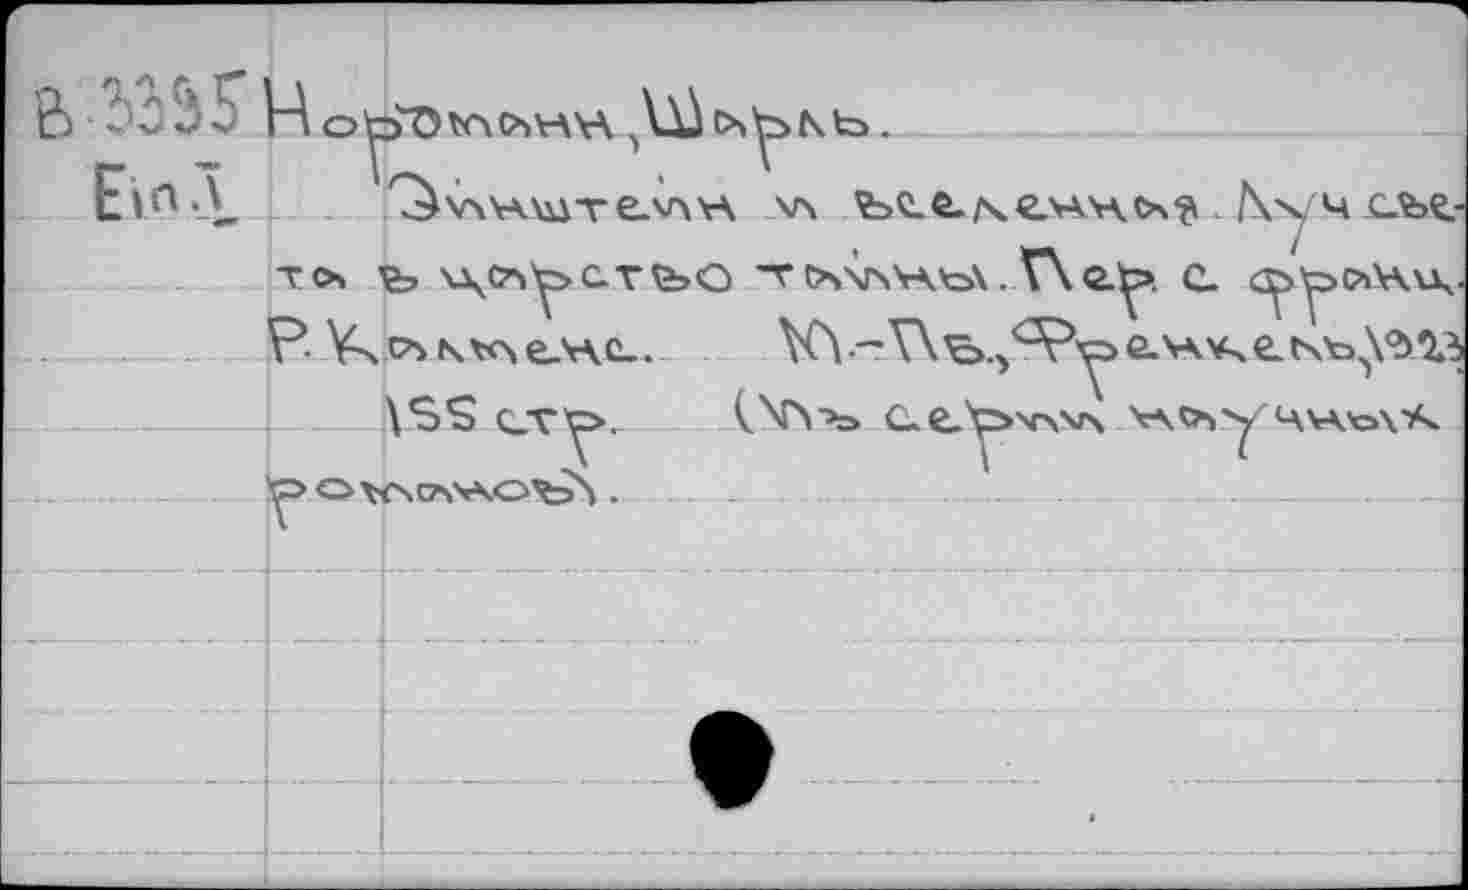 В 3395 Нордманн, Шарль.
Ein.1 Эйнштейн и вселенная. Луч све-
та в царство тайны. Пер. с франц.
Р. Калменс.. М.-Пв., Френкель, 1923
155 стр. (Из серии научных
романов).